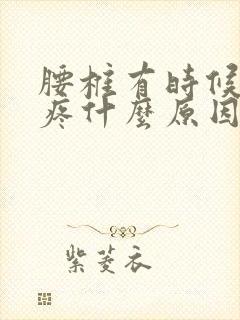 腰椎有時候
疼什麼原因
紫菱衣